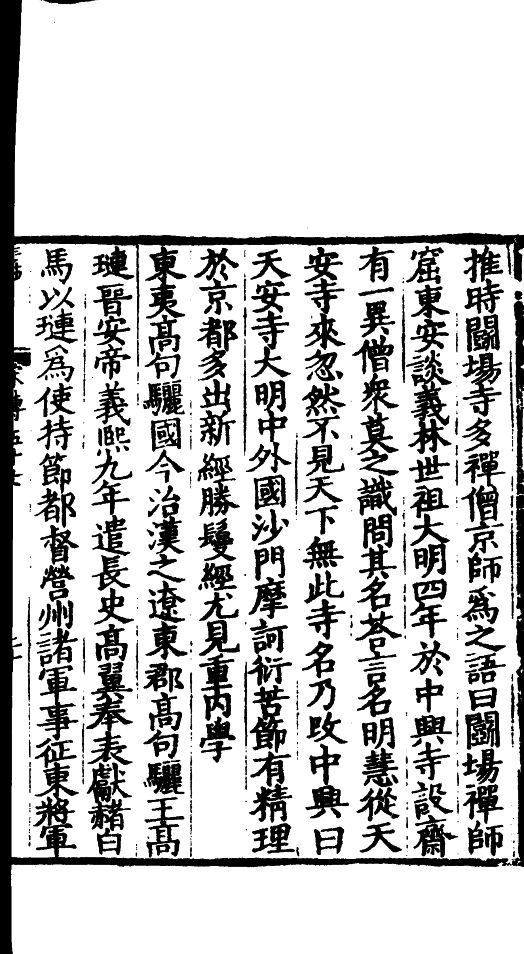 推時鬭場寺多禪僧京師爲之語曰鬭場禪師
窟東安談義林世祖大明四年於中興寺設齋
有一異僧衆莫之識問其名荅言名明慧從天
安寺來忽然不見天下無此寺名乃改中興曰
天安寺大明中外國沙門摩訶衍苦節有精理
於京都多出新經勝鬘經尤見重內學
東夷高句驪國今治漢之遼東郡高句驪王高
璉晉安帝義熙九年遣長史高翼奉表獻赭白
馬以璉爲使持節都督營州諸軍事征東將軍